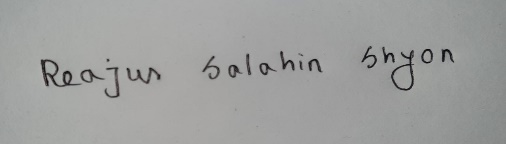 Reajus Salahin Shyon